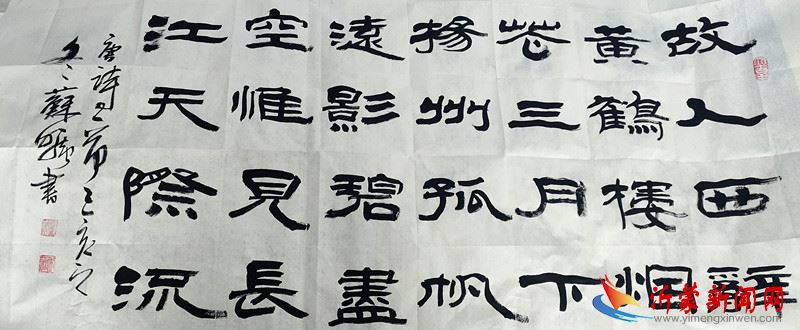 故人西辭
黃鶴樓烟
花三月下
揚州孤帆
遠影碧盡
空惟見長
江天際流
唐詩一首己亥之
冬蘇書
沂蒙新闻网
www.yimengxinwen.com